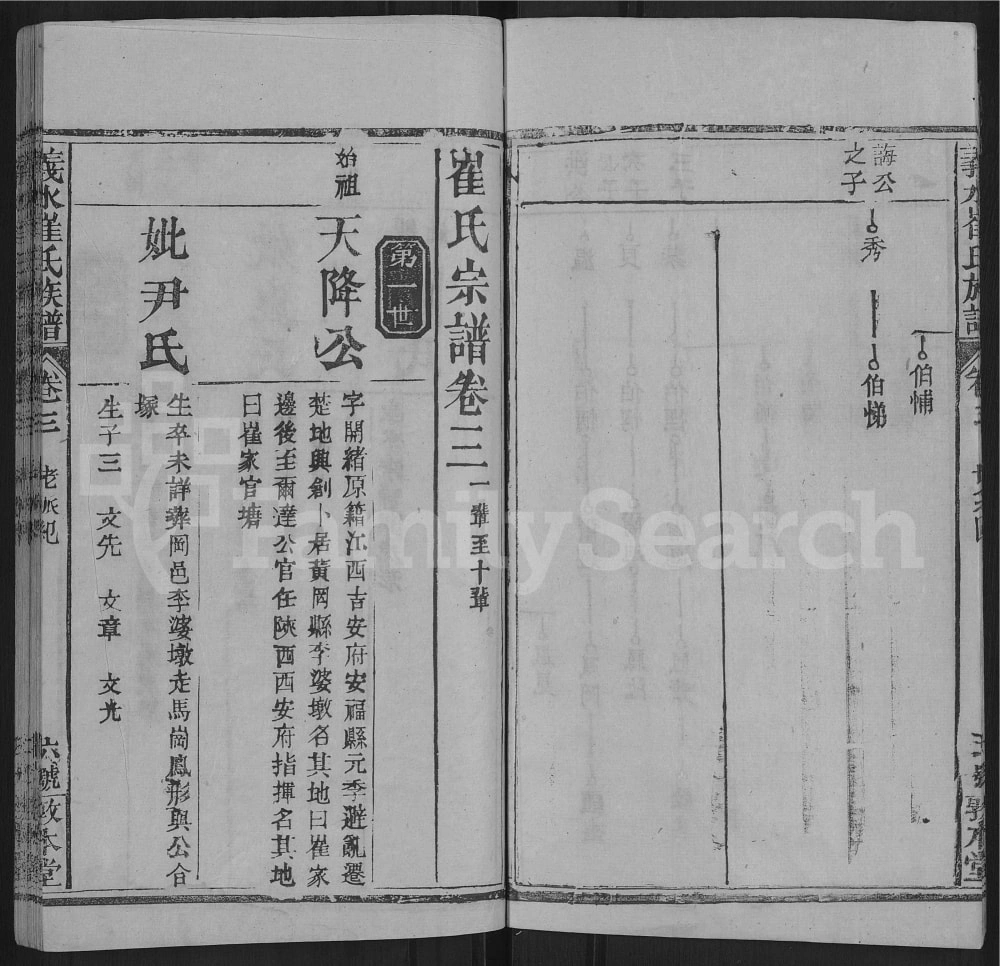 誨公
之子
秀
伯悌
伯悑
崔氏宗譜卷三 一輩至十輩
第一世
始祖
天降公
字開緒原籍江西吉安府安福縣元季避亂遷
楚地興創卜居黃岡縣李婆墩名其地曰崔家
邊後至爾達公官任陝西西安府指揮名其地
曰崔家官塘
妣尹氏
生卒未詳葬岡邑李婆墩走馬崗鳳形與公合
塚
生子三 文先 文章 文光
義水崔氏族譜
卷三
六號敦本堂
FamilySearch